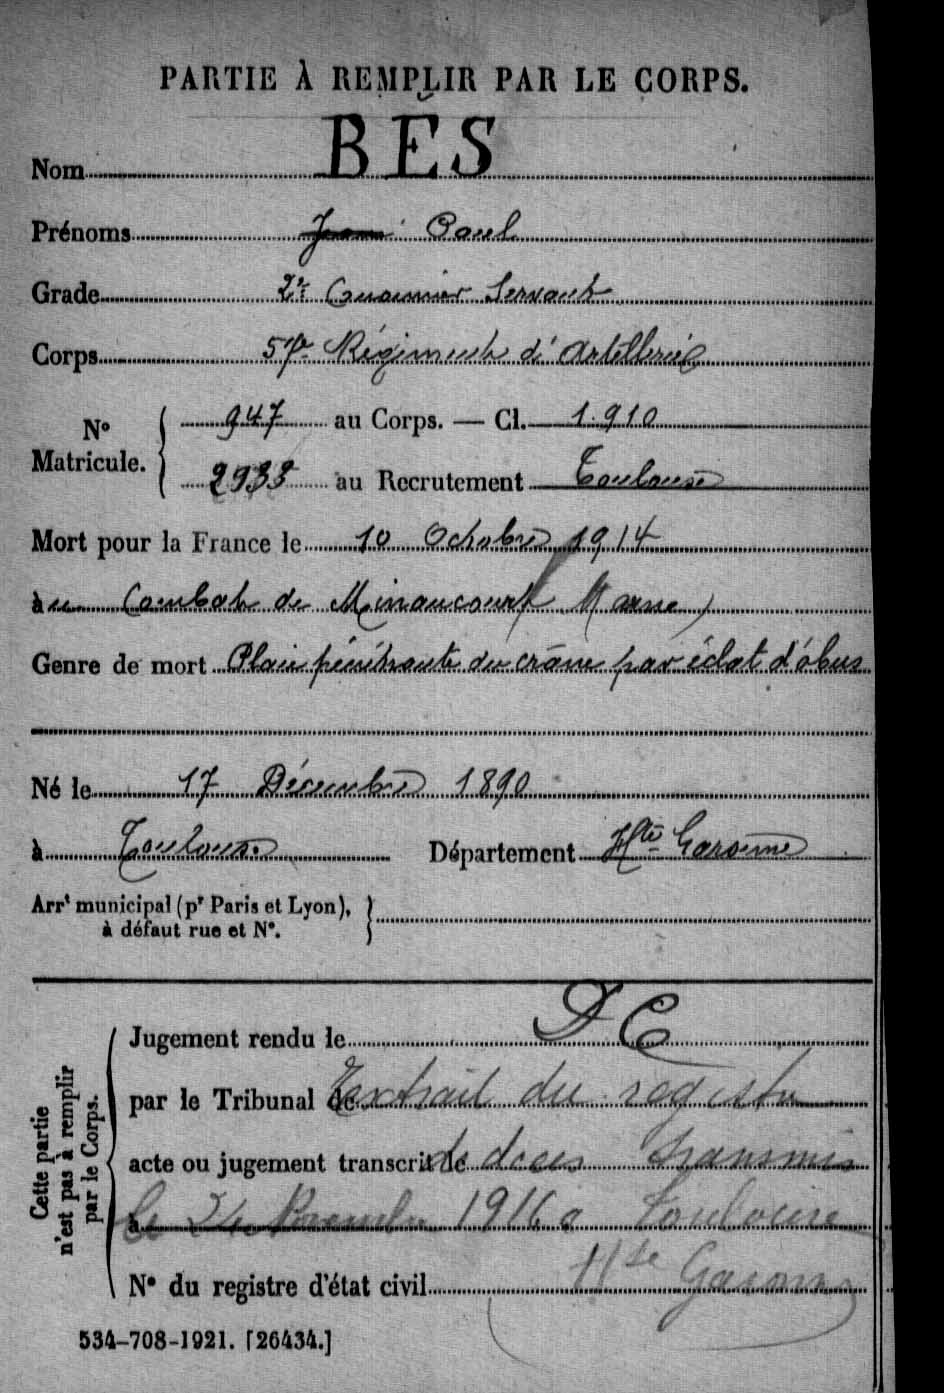 PARTIE À REMPLIR PAR LE CORPS.
Nom BÉS
Prénoms Paul
Grade 2e Canonnier Servant
Corps 57e Régiment d'Artillerie
N° Matricule. 947 au Corps. — Cl. 1.910
2933 au Recrutement Toulouse
Mort pour la France le 10 Octobre 1914
au Combat de Minaucourt Marne)
Genre de mort Plaie pénétrante du crâne par éclat d'obus
Né le 17 Décembre 1890
à Toulouse Département Hte Garonne
Arrt municipal (pr Paris et Lyon),
à défaut rue et N°.
Cette partie
n'est pas à remplir
par le Corps.
Jugement rendu le DC
par le Tribunal de Extrait du registre
acte ou jugement transcrit le de décès transmis
à le 1916 a Toulouse
N° du registre d'état civil Hte Garonne
534-708-1921. [26434.]